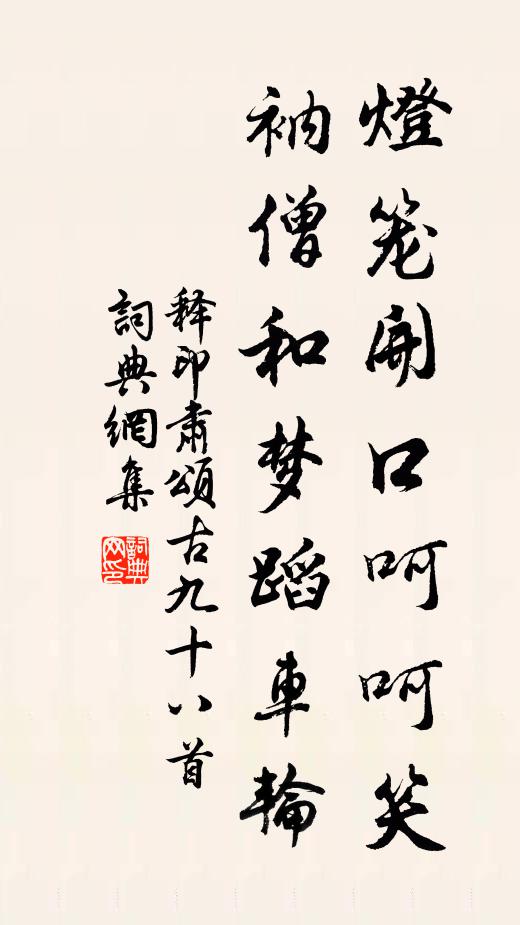 燈笼開口呵呵笑
衲僧和梦蹈車輪
释印肃頌古九十八首
詞典網集
詞典网印